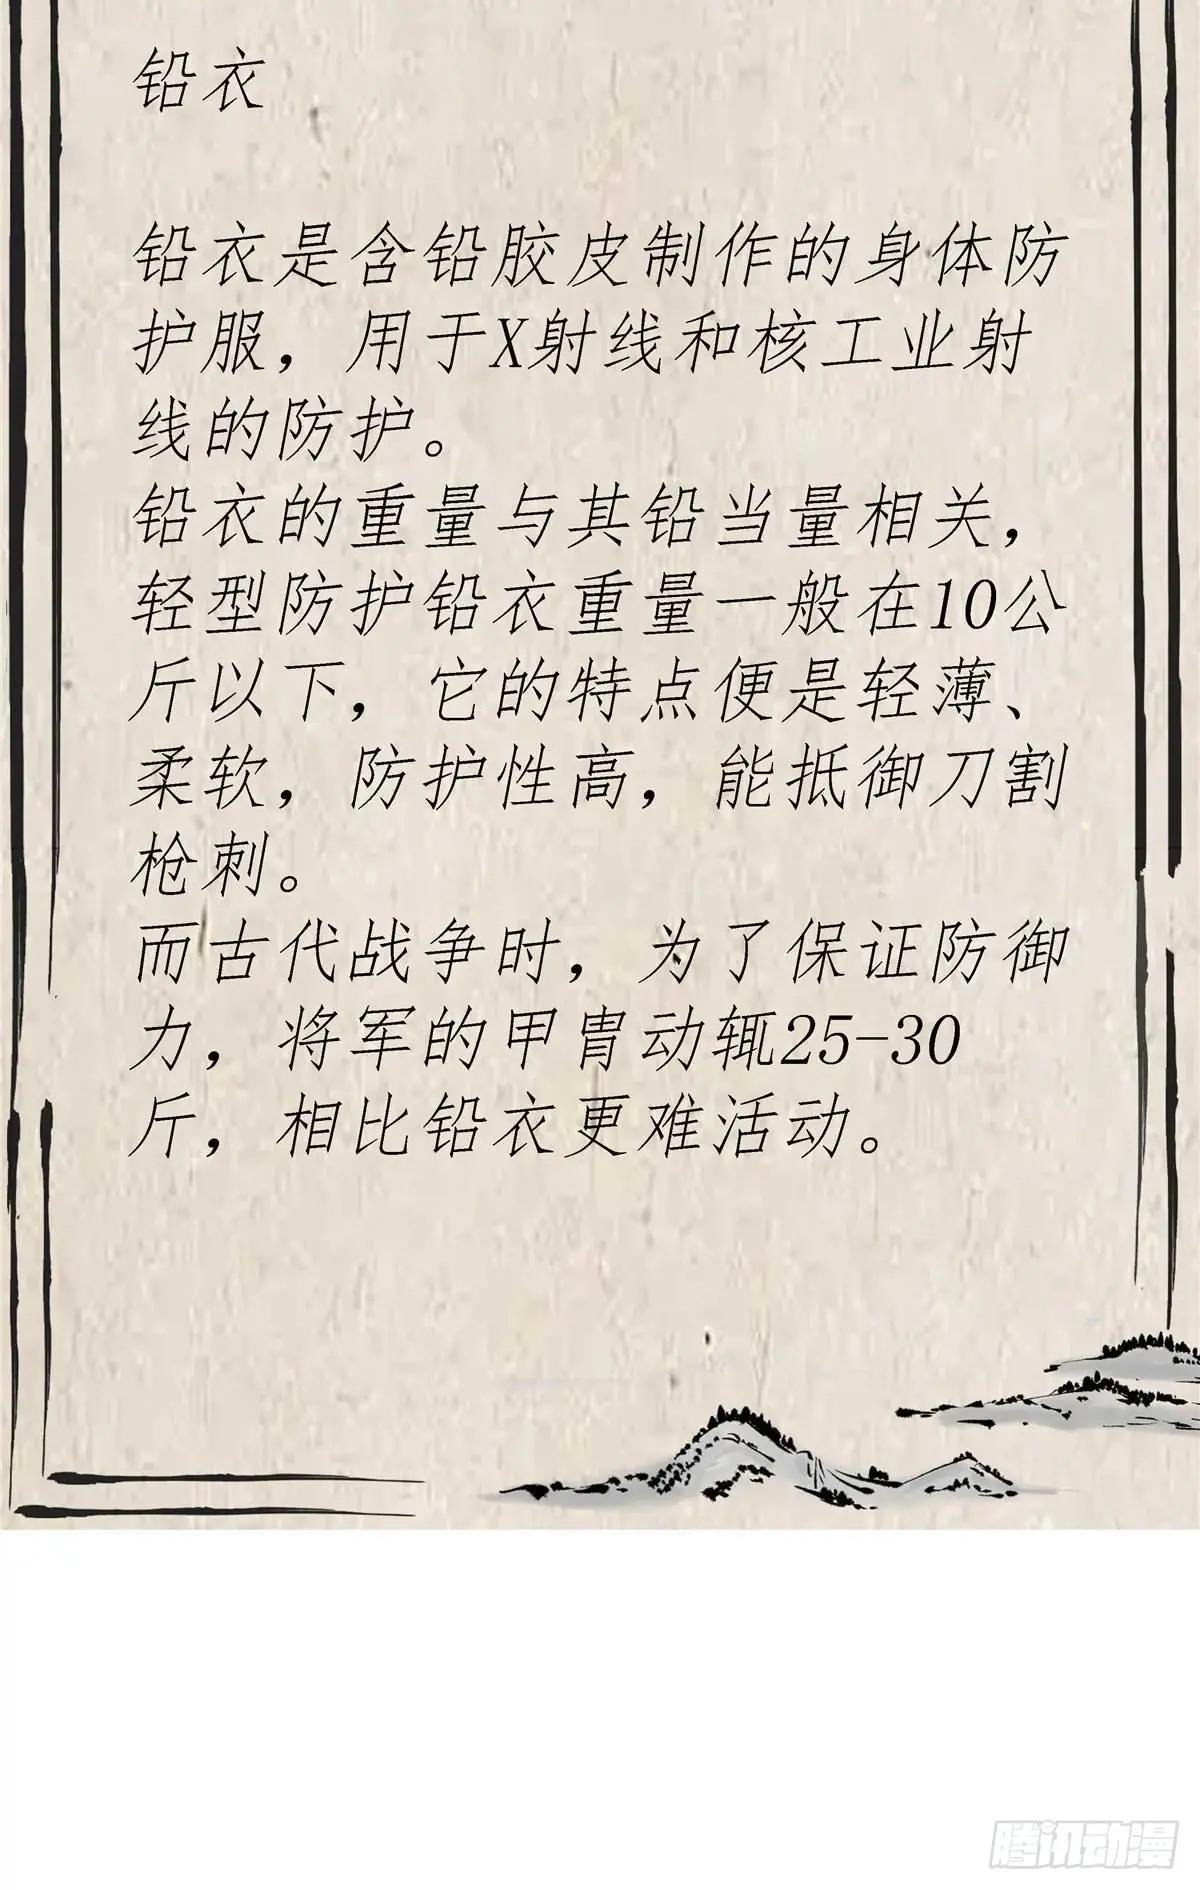 铅衣
铅衣是含铅胶皮制作的身体防
护服，用于X射线和核工业射
线的防护。
铅衣的重量与其铅当量相关，
轻型防护铅衣重量一般在10公
斤以下，它的特点便是轻薄、
柔软，防护性高，能抵御刀割
枪刺。
而古代战争时，为了保证防御
力，将军的甲胄动辄25-30
斤，相比铅衣更难活动。
腾讯动漫